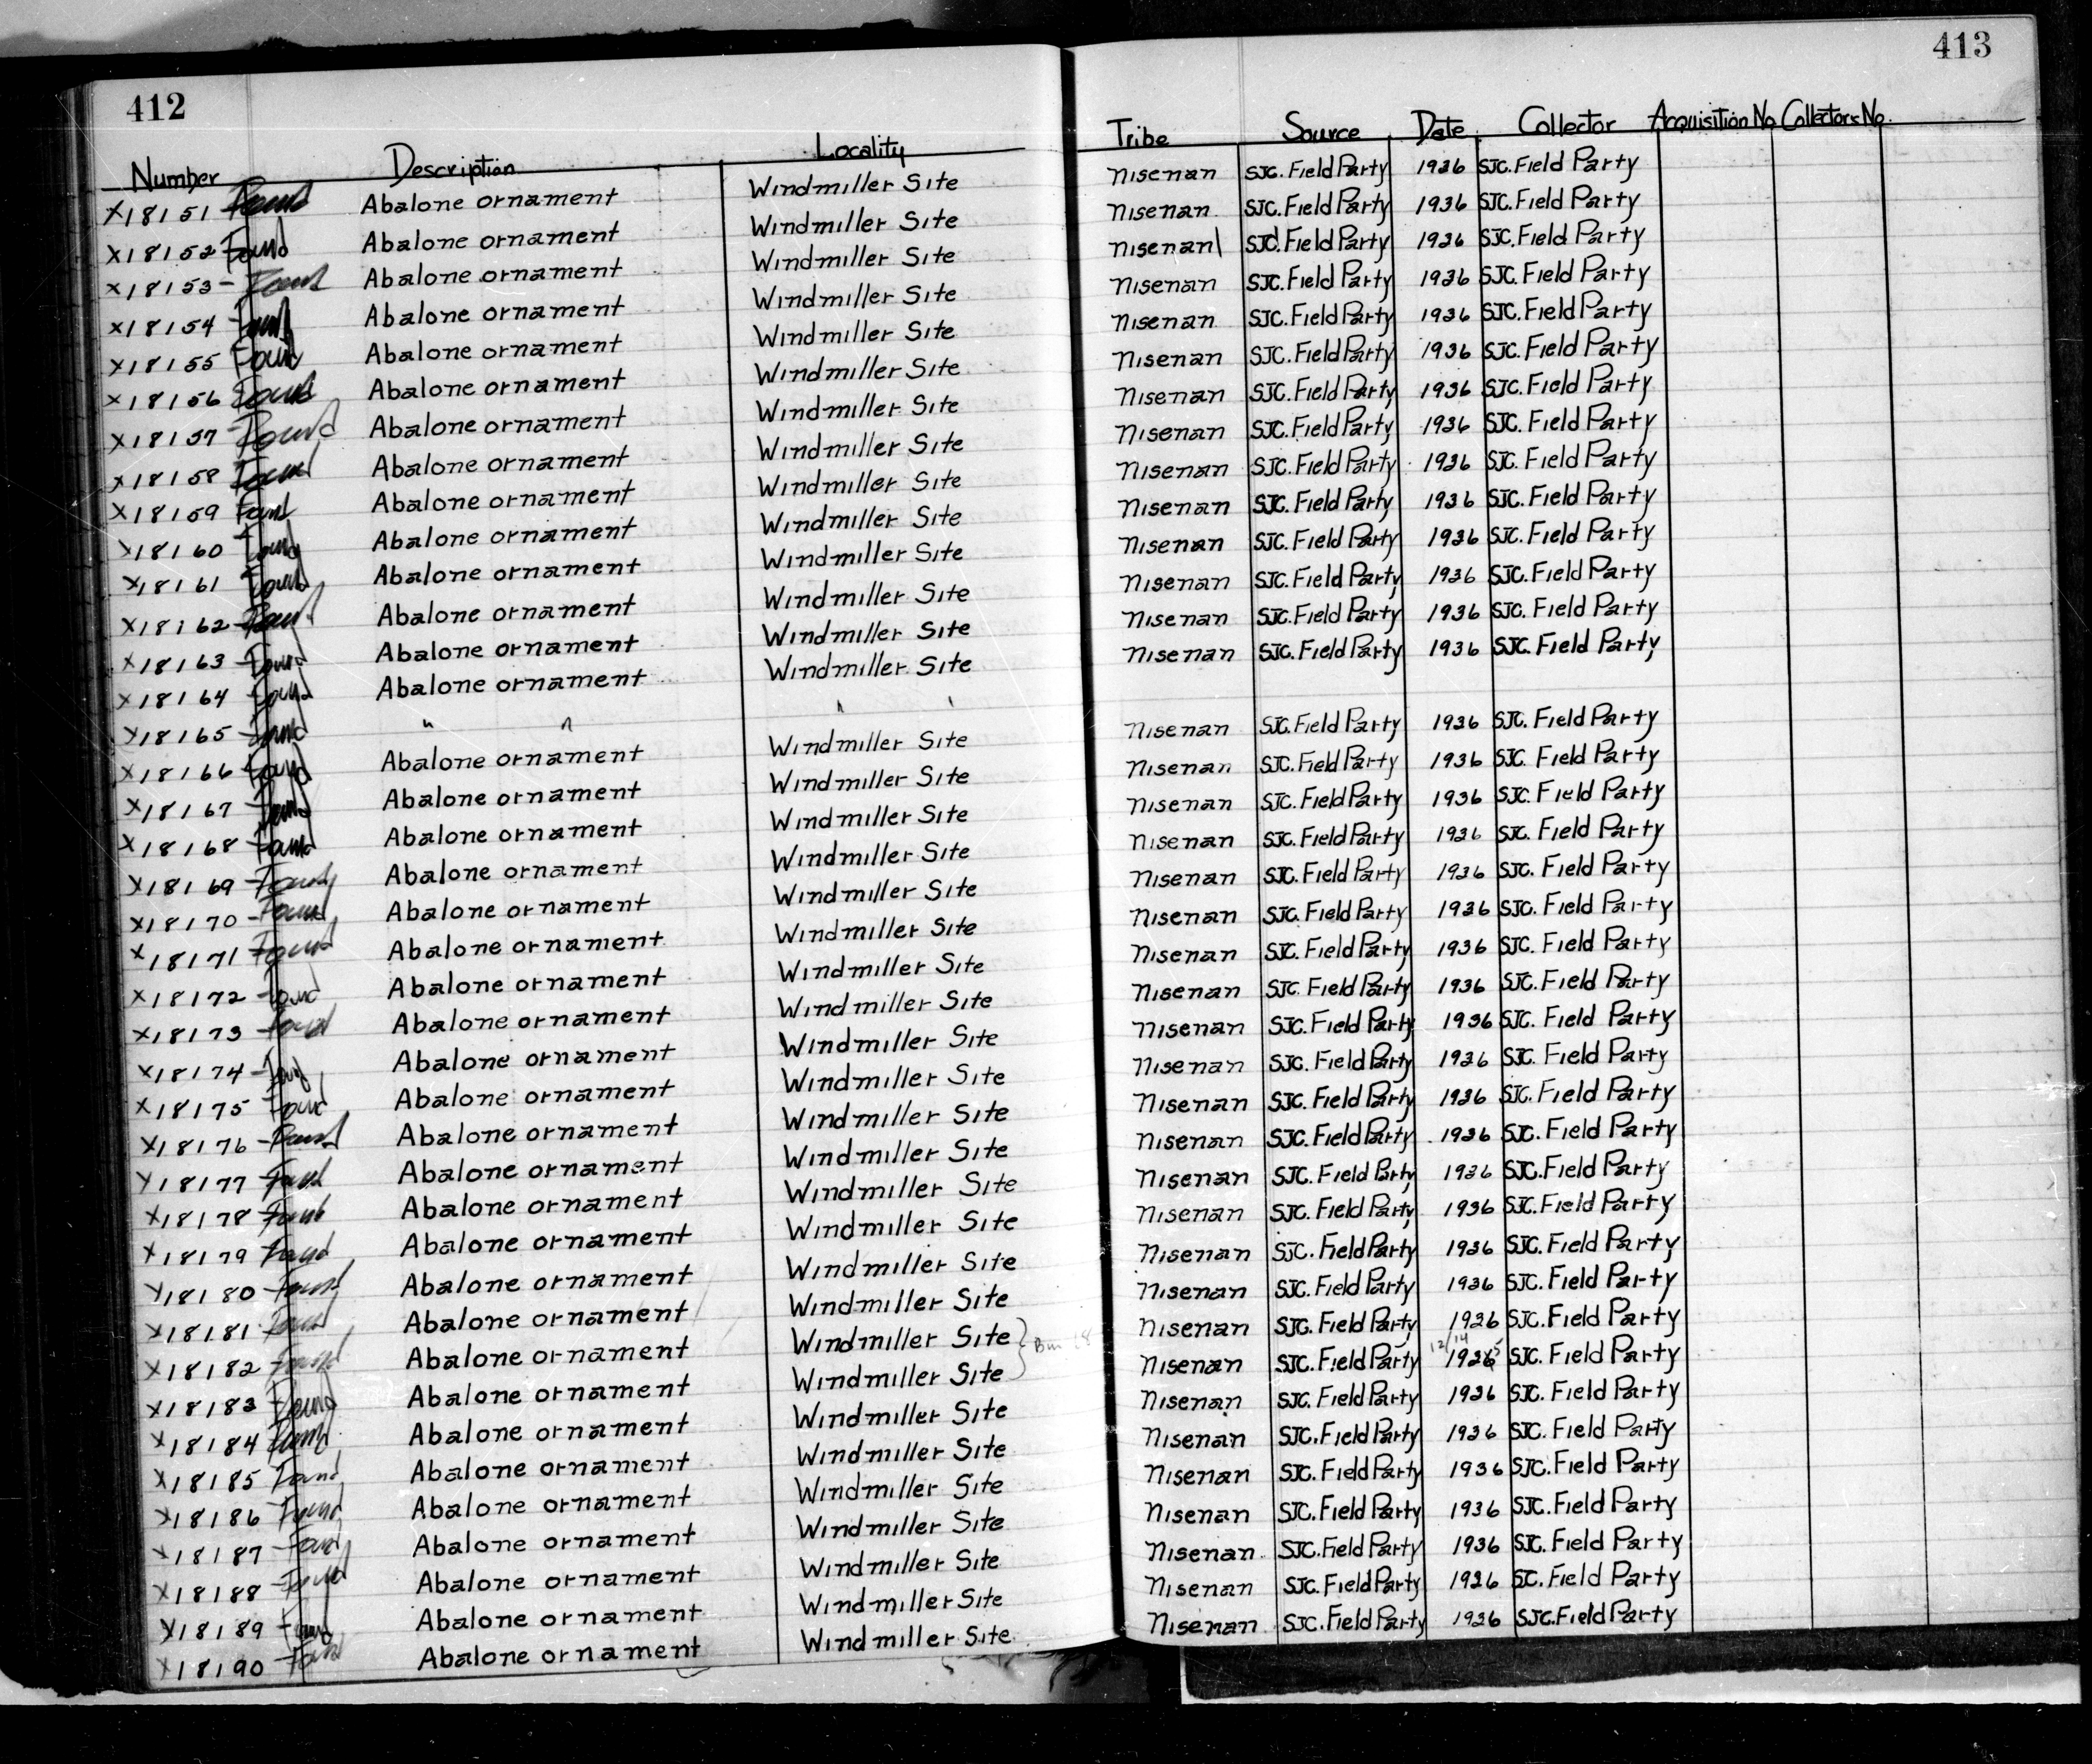 412
Number Description Locality
X18151 Found Abalone ornament Windmiller Site
X18152 Found Abalone ornament Windmiller Site
X18153 - Found Abalone ornament Windmiller Site
X18154 Found Abalone ornament Windmiller Site
X18155 Found Abalone ornament Windmiller Site
X18156 Found Abalone ornament Windmiller Site
X18157 Found Abalone ornament Windmiller Site
X18158 Found Abalone ornament Windmiller Site
X18159 Found Abalone ornament Windmiller Site
X18160 Found Abalone ornament Windmiller Site
X18161 Found Abalone ornament Windmiller Site
X18162 Found Abalone ornament Windmiller Site
X18163 Found Abalone ornament Windmiller Site
X18164 Found Abalone ornament Windmiller Site
X18165 Found " " " "
X18166 Found Abalone ornament Windmiller Site
X18167 Found Abalone ornament Windmiller Site
X18168 Found Abalone ornament Windmiller Site
X18169 Found Abalone ornament Windmiller Site
X18170 Found Abalone ornament Windmiller Site
X18171 Found Abalone ornament Windmiller Site
X18172 Found Abalone ornament Windmiller Site
X18173 Found Abalone ornament Windmiller Site
X18174 Found Abalone ornament Windmiller Site
X18175 Found Abalone ornament Windmiller Site
X18176 Found Abalone ornament Windmiller Site
X18177 Found Abalone ornament Windmiller Site
X18178 Found Abalone ornament Windmiller Site
X18179 Found Abalone ornament Windmiller Site
X18180 Found Abalone ornament Windmiller Site
X18181 Found Abalone ornament Windmiller Site
X18182 Found Abalone ornament Windmiller Site
X18183 Found Abalone ornament Windmiller Site
X18184 Found Abalone ornament Windmiller Site
X18185 Found Abalone ornament Windmiller Site
X18186 Found Abalone ornament Windmiller Site
X18187 Found Abalone ornament Windmiller Site
X18188 Found Abalone ornament Windmiller Site
X18189 Found Abalone ornament Windmiller Site
X18190 Found Abalone ornament Windmiller Site
413
Tribe Source Date Collector Acquisition No. Collectors No.
Nisenan SJC. Field Party 1936 SJC. Field Party
Nisenan SJC. Field Party 1936 SJC. Field Party
Nisenan SJC. Field Party 1936 SJC. Field Party
Nisenan SJC. Field Party 1936 SJC. Field Party
Nisenan SJC. Field Party 1936 SJC. Field Party
Nisenan SJC. Field Party 1936 SJC. Field Party
Nisenan SJC. Field Party 1936 SJC. Field Party
Nisenan SJC. Field Party 1936 SJC. Field Party
Nisenan SJC. Field Party 1936 SJC. Field Party
Nisenan SJC. Field Party 1936 SJC. Field Party
Nisenan SJC. Field Party 1936 SJC. Field Party
Nisenan SJC. Field Party 1936 SJC. Field Party
Nisenan SJC. Field Party 1936 SJC. Field Party
Nisenan SJC. Field Party 1936 SJC. Field Party
Nisenan SJC. Field Party 1936 SJC. Field Party
Nisenan SJC. Field Party 1936 SJC. Field Party
Nisenan SJC. Field Party 1936 SJC. Field Party
Nisenan SJC. Field Party 1936 SJC. Field Party
Nisenan SJC. Field Party 1936 SJC. Field Party
Nisenan SJC. Field Party 1936 SJC. Field Party
Nisenan SJC. Field Party 1936 SJC. Field Party
Nisenan SJC. Field Party 1936 SJC. Field Party
Nisenan SJC. Field Party 1936 SJC. Field Party
Nisenan SJC. Field Party 1936 SJC. Field Party
Nisenan SJC. Field Party 1936 SJC. Field Party
Nisenan SJC. Field Party 1936 SJC. Field Party
Nisenan SJC. Field Party 1936 SJC. Field Party
Nisenan SJC. Field Party 1936 SJC. Field Party
Nisenan SJC. Field Party 1936 SJC. Field Party
Nisenan SJC. Field Party 1936 SJC. Field Party
Nisenan SJC. Field Party 1936 SJC. Field Party
Nisenan SJC. Field Party 12/14 1936 5 SJC. Field Party
Nisenan SJC. Field Party 1936 SJC. Field Party
Nisenan SJC. Field Party 1936 SJC. Field Party
Nisenan SJC. Field Party 1936 SJC. Field Party
Nisenan SJC. Field Party 1936 SJC. Field Party
Nisenan SJC. Field Party 1936 SJC. Field Party
Nisenan SJC. Field Party 1936 SJC. Field Party
Nisenan SJC. Field Party 1936 SJC. Field Party